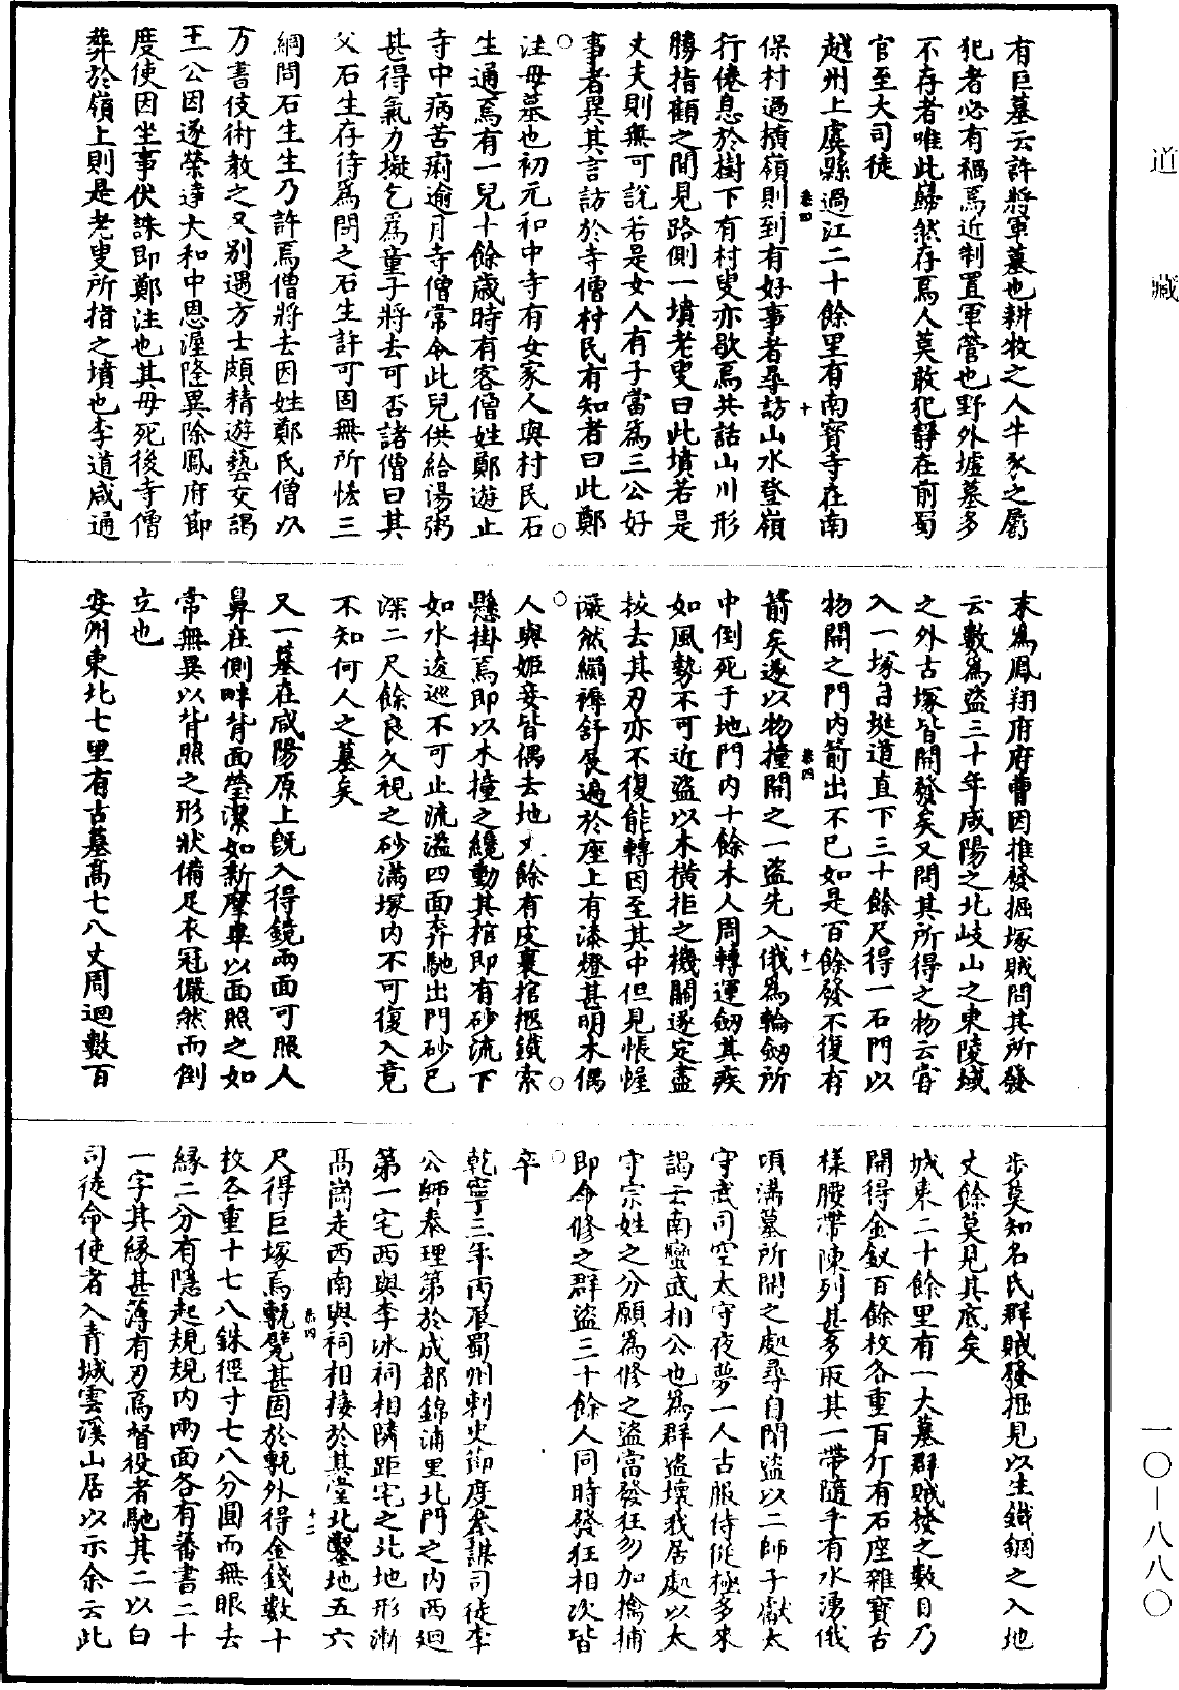 有巨墓云許將軍墓也耕牧之人牛豕之屬
犯者必有禍焉近制置軍營也野外墟墓多
不存者唯此巋然存焉人莫敢犯靜在前蜀
官至大司徒
越州上虞縣過江二十餘里有南寳寺在南
卷四
十
保村過橫嶺則到有好事者尋訪山水登嶺
行倦息於樹下有村叟亦歇焉共話山川形
勝指顧之間見路側一墳老叟曰此墳若是
丈夫則無可說若是女人有子當爲三公好
事者異其言訪於寺僧村民有知者曰此鄭
注母墓也初元和中寺有女家人與村民石
生通焉有一兒十餘歲時有客僧姓鄭遊止
寺中病苦痢逾月寺僧常令此兒供給湯粥
甚得氣力擬乞爲童子將去可否諸僧曰其
父石生存待爲問之石生許可固無所恡三
綱問石生生乃許焉僧將去因姓鄭氏僧以
方書伎術教之又別遇方士頗精遊藝交謁
王公因遂榮達大和中恩渥隆異除鳳府節
度使因坐事伏誅即鄭注也其母死後寺僧
葬於嶺上則是老叟所指之墳也李道咸通
末爲鳳翔府府曹因推發掘塚賊問其所發
云數爲盜三十年咸陽之北岐山之東陵域
之外古塚皆開發矣又問其所得之物云嘗
入一塚自埏道直下三十餘尺得一石門以
物開之門內箭出不已如是百餘發不復有
卷四
十一
箭矣遂以物撞開之一盜先入俄爲輪劒所
中倒死于地門內十餘木人周轉運劒其疾
如風勢不可近盜以木橫拒之機關遂定盡
拔去其刃亦不復能轉因至其中但見帳幄
儼然繃褥舒展遍於座上有漆燈甚明木偶
人與姬妾皆偶去地丈餘有皮裹棺柩鐵索
懸掛焉即以木撞之纔動其棺即有砂流下
如水逡巡不可止流溢四面奔馳出門砂已
深二尺餘良久視之砂滿塚內不可復入竟
不知何人之墓矣
又一墓在咸陽原上旣入得鏡兩面可照人
鼻在側畔背面瑩潔如新摩畢以面照之如
常無異以背照之形狀備足衣冠儼然而倒
立也
安州東北七里有古墓高七八丈周迴數百
步莫知名氏群賊發掘見以生鐵錮之入地
丈餘莫見其底矣
城東二十餘里有一大墓群賊發之數日乃
開得金釵百餘枚各重百斤有石座雜寶古
樣腰帶陳列甚多取其一帶隨手有水湧俄
頃滿墓所開之處尋自閉盜以二師子獻太
守武司空太守夜夢一人古服侍從極多來
謁云南蠻武相公也爲群盜壞我居處以太
守宗姓之分願爲修之盜當發狂勿加擒捕
即命修之群盜三十餘人同時發狂相次皆
卒
乾寧三年丙辰蜀州刺史節度叅謀司徒李
公師泰理第於成都錦浦里北門之內西迴
第一宅西與李冰祠相隣距宅之北地形漸
高崗走西南與祠相接於其堂北鑿地五六
卷四
十二
尺得巨塚焉甎甓甚固於甎外得金錢數十
枚各重十七八銖徑寸七八分圓而無眼去
緣二分有隱起規規內兩面各有蕃書二十
一字其緣甚薄有刃焉督役者馳其二以白
司徒命使者入青城雲溪山居以示余云此
道藏
一〇—八八〇